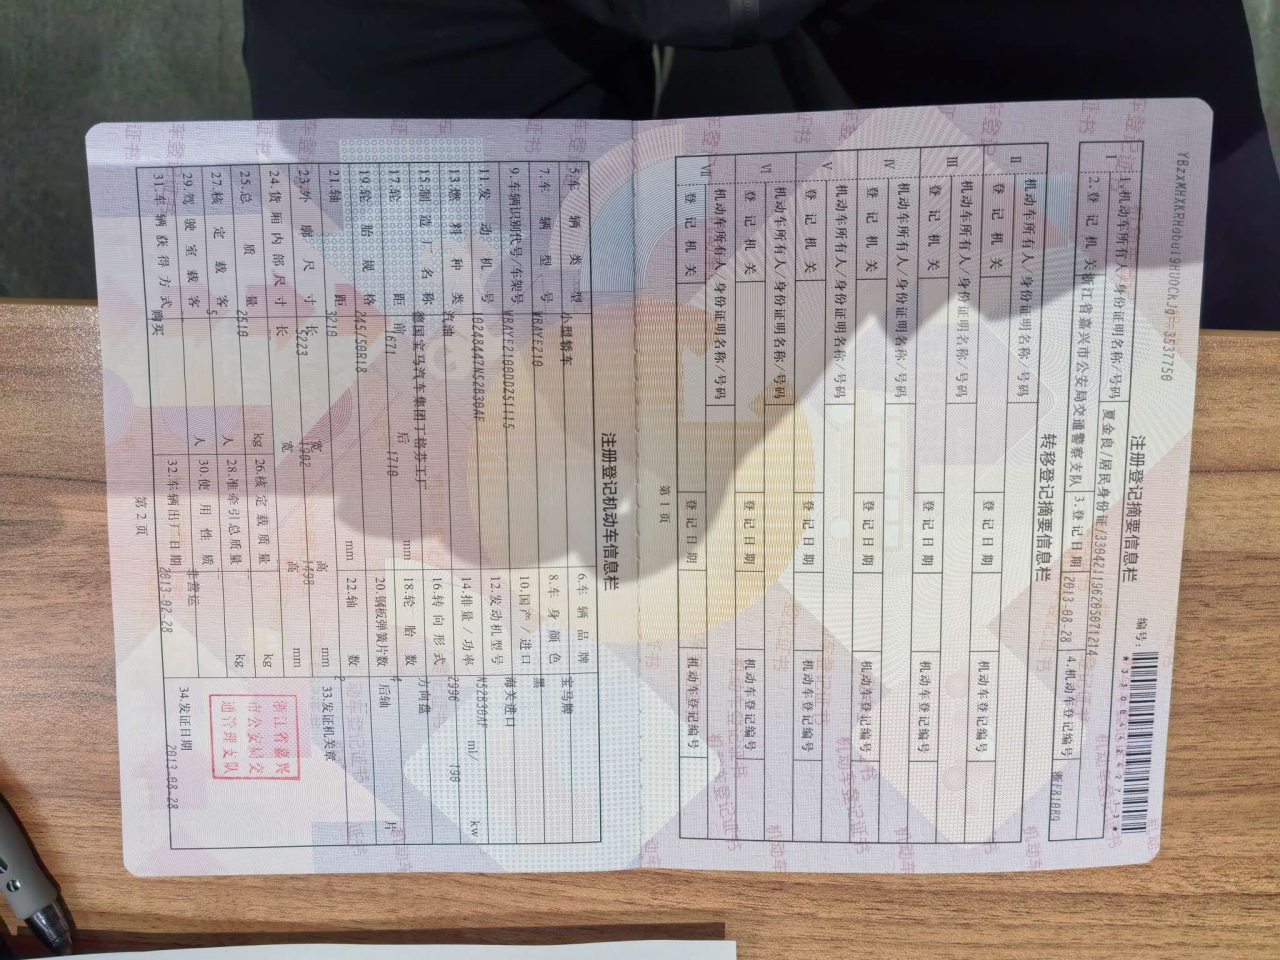 注册登记摘要信息栏
编号:
Ⅰ
1.机动车所有人/身份证明名称/号码 夏金良/居民身份证/330421196205071214
2.登记机关 浙江省嘉兴市公安局交通警察支队 3.登记日期 2013-08-28 4.机动车登记编号 浙F810B9
转移登记摘要信息栏
Ⅱ 机动车所有人/身份证明名称/号码
登记机关 登记日期 机动车登记编号
Ⅲ 机动车所有人/身份证明名称/号码
登记机关 登记日期 机动车登记编号
Ⅳ 机动车所有人/身份证明名称/号码
登记机关 登记日期 机动车登记编号
Ⅴ 机动车所有人/身份证明名称/号码
登记机关 登记日期 机动车登记编号
Ⅵ 机动车所有人/身份证明名称/号码
登记机关 登记日期 机动车登记编号
Ⅶ 机动车所有人/身份证明名称/号码
登记机关 登记日期 机动车登记编号
第1页
注册登记机动车信息栏
5.车辆类型 小型轿车 6.车辆品牌 宝马牌
7.车辆型号 WBAYE210 8.车身颜色 黑
9.车辆识别代号/车架号 WBAYE2100DD251115 10.国产/进口 海关进口
11.发动机号 10248447N52B30AF 12.发动机型号 N52B30AF
13.燃料种类 汽油 14.排量/功率 2996 ml/ 190 kw
15.制造厂名称 德国宝马汽车集团丁格芬工厂 16.转向形式 方向盘
17.轮距 前1671 后1710 mm 18.轮胎数 4
19.轮胎规格 245/50R18 20.钢板弹簧片数 后轴 片
21.轴距 3210 mm 22.轴数 2
23.外廓尺寸 长5223 宽1902 高1498 mm
24.货厢内部尺寸 长 宽 高 mm
25.总质量 2510 kg 26.核定载质量 kg
27.核定载客 5 人 28.准牵引总质量 kg
29.驾驶室载客 人 30.使用性质 非营运
31.车辆获得方式 购买 32.车辆出厂日期 2013-02-28
33.发证机关章
浙江省嘉兴
市公安局交
通管理支队
34.发证日期 2013-08-28
第2页